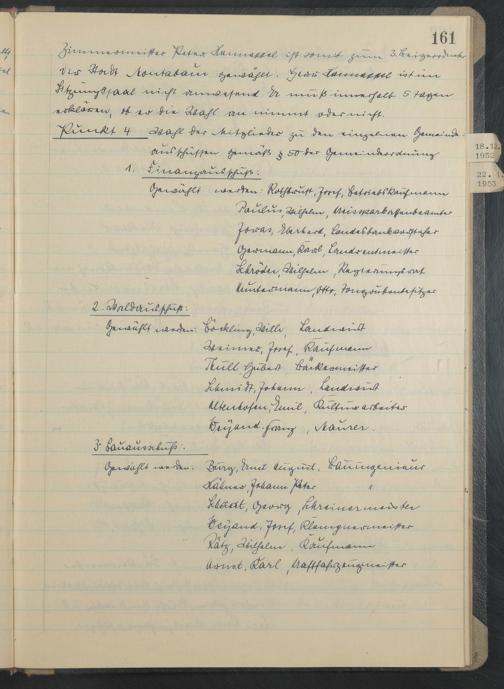 161
Zimmermeister Peter Hannappel ist somit zum 3. Beigeordneten
der Stadt Montabaur gewählt. Herr Hannappel ist im
Sitzungssaal nicht anwesend. Er muß innerhalb 5 Tagen
erklären, ob er die Wahl annimmt oder nicht.
Punkt 4 Wahl der Mitglieder zu den einzelnen Gemeinde-
ausschüssen gemäß § 50 der Gemeindeordnung
18.12.
1952
22. 1.
1953
1. Finanzausschuß:
Gewählt werden: Josef, Betriebskaufmann
Paulus, Wilhelm,
Joras, Herbert,
Germann, Karl, Landrentmeister
Schröder, Wilhelm, Regierungsrat
Otto, Tongrubenbesitzer
2. Waldausschuß:
Gewählt werden: Böckling, Willi, Landwirt
Weimer, Josef, Kaufmann
Thull Hubert Bäckermeister
Schmidt, Johann, Landwirt
Altenhofen, Emil, Kulturarbeiter
Weyand Franz, Maurer.
3. Bauausschuß:
Gewählt werden: Burg, Ernst August, Bauingenieur
Johann Peter "
Schadt, Georg, Schreinermeister
Weyand, Josef, Klempnermeister
Kätz, Wilhelm, Kaufmann
Karl,